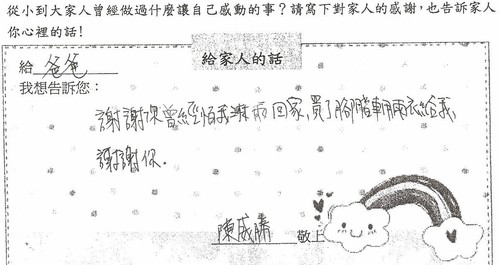 從小到大家人曾經做過什麼讓自己感動的事？請寫下對家人的感謝，也告訴家人
你心裡的話！
給家人的話
給 爸爸
我想告訴您：
謝謝你曾經怕我淋雨回家，買了腳踏車雨衣給我，
謝謝你.
陳威勝 敬上